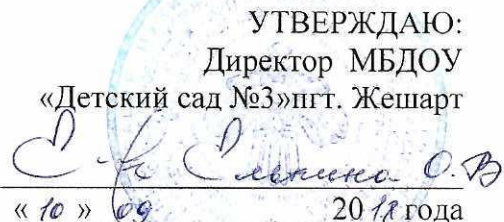 УТВЕРЖДАЮ:
Директор МБДОУ
«Детский сад №3»пгт. Жешарт
О.В
« 10 » 09 20 года